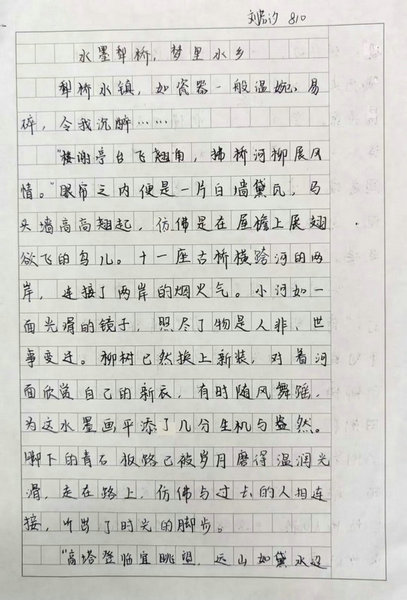 刘启汐 810
水墨犁桥，梦里水乡
犁桥水镇，如瓷器一般温婉、易
碎，令我沉醉……
“楼谢亭台飞翘角，拂桥河柳展风
情。”眼帘之内便是一片白墙黛瓦，马
头墙高高翘起，仿佛是在屋檐上展翅
欲飞的鸟儿。十一座古桥横跨河的两
岸，连接了两岸的烟火气。小河如一
面光滑的镜子，照尽了物是人非、世
事变迁。柳树已然换上新装，对着河
面欣赏自己的新衣，有时随风舞蹈，
为这水墨画平添了几分生机与盎然。
脚下的青石板路已被岁月磨得温润光
滑，走在路上，仿佛与过去的人相连
接，听出了时光的脚步。
“高塔登临宜眺望，远山如黛水边